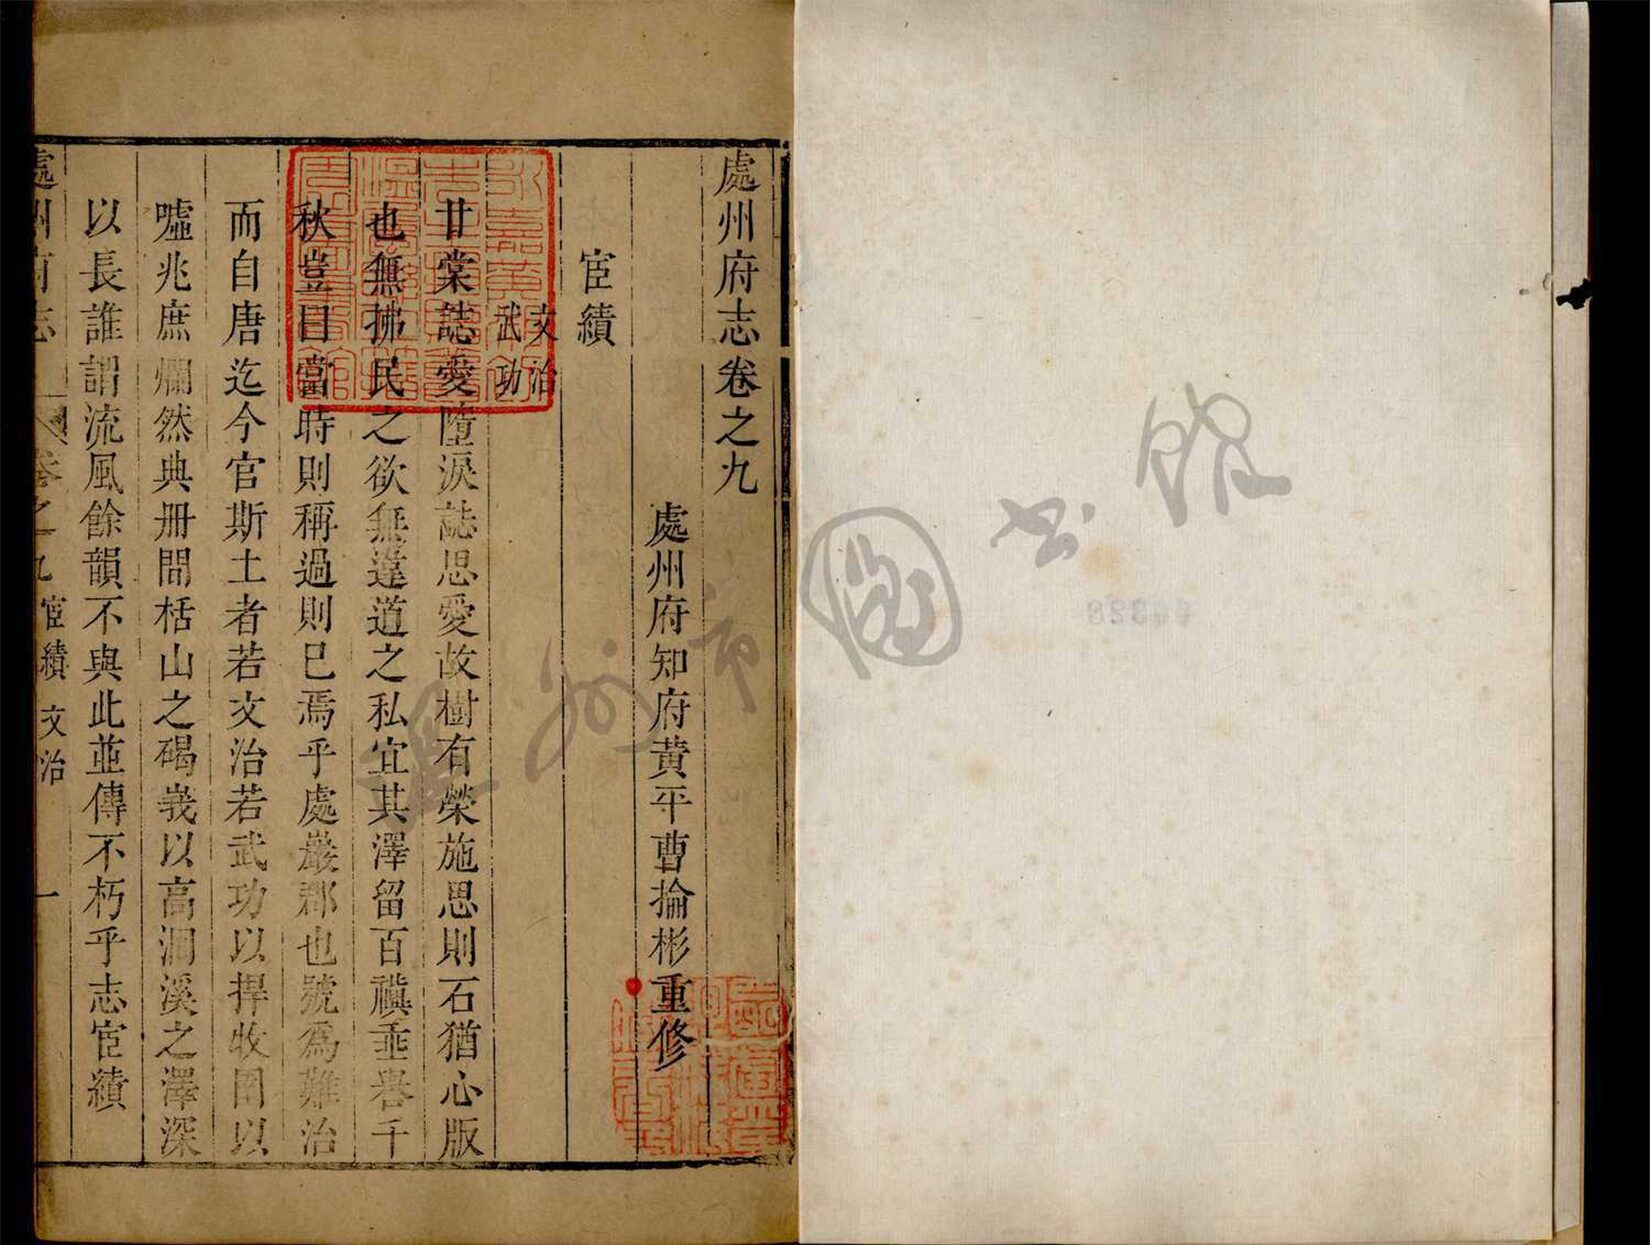 處州府志卷之九
處州府知府黃平曹掄彬重修
宦績
文治
武功
甘棠誌愛墮淚誌思愛故樹有榮施思則石猶心版
也無拂民之欲無違道之私宜其澤留百禩垂譽千
秋豈曰當時則稱過則已焉乎處巖郡也號為難治
而自唐迄今官斯土者若文治若武功以捍牧圉以
噓兆庶爛然典冊間栝山之碣峩以高洄溪之澤深
以長誰謂流風餘韻不與此並傳不朽乎志宦績
處州府志
卷之九宦績 文治
一
圖
书
馆
市